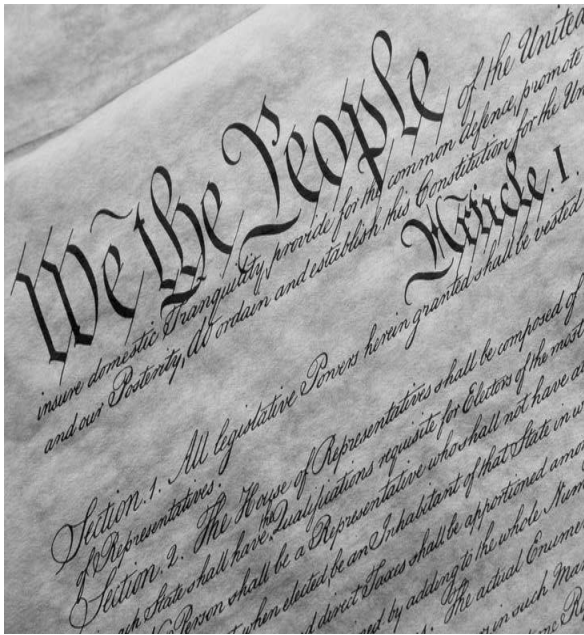 We the People of the United
insure domestic Tranquility, provide for the common defence, promote
and our Posterity, do ordain and establish this Constitution for the Uni
Article. I.
Section. 1. All legislative Powers herein granted shall be vested
of Representatives.
Section. 2. The House of Representatives shall be composed of
each State shall have the Qualifications requisite for Electors of the most
No Person shall be a Representative who shall not have at
when elected, be an Inhabitant of that State in w
and direct Taxes shall be apportioned amo
by adding to the whole Num
The actual Enume
in such Man